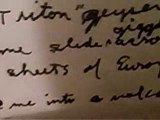 Triton" geyser
gigg
me slide across
sheets of Europ
me into a volca